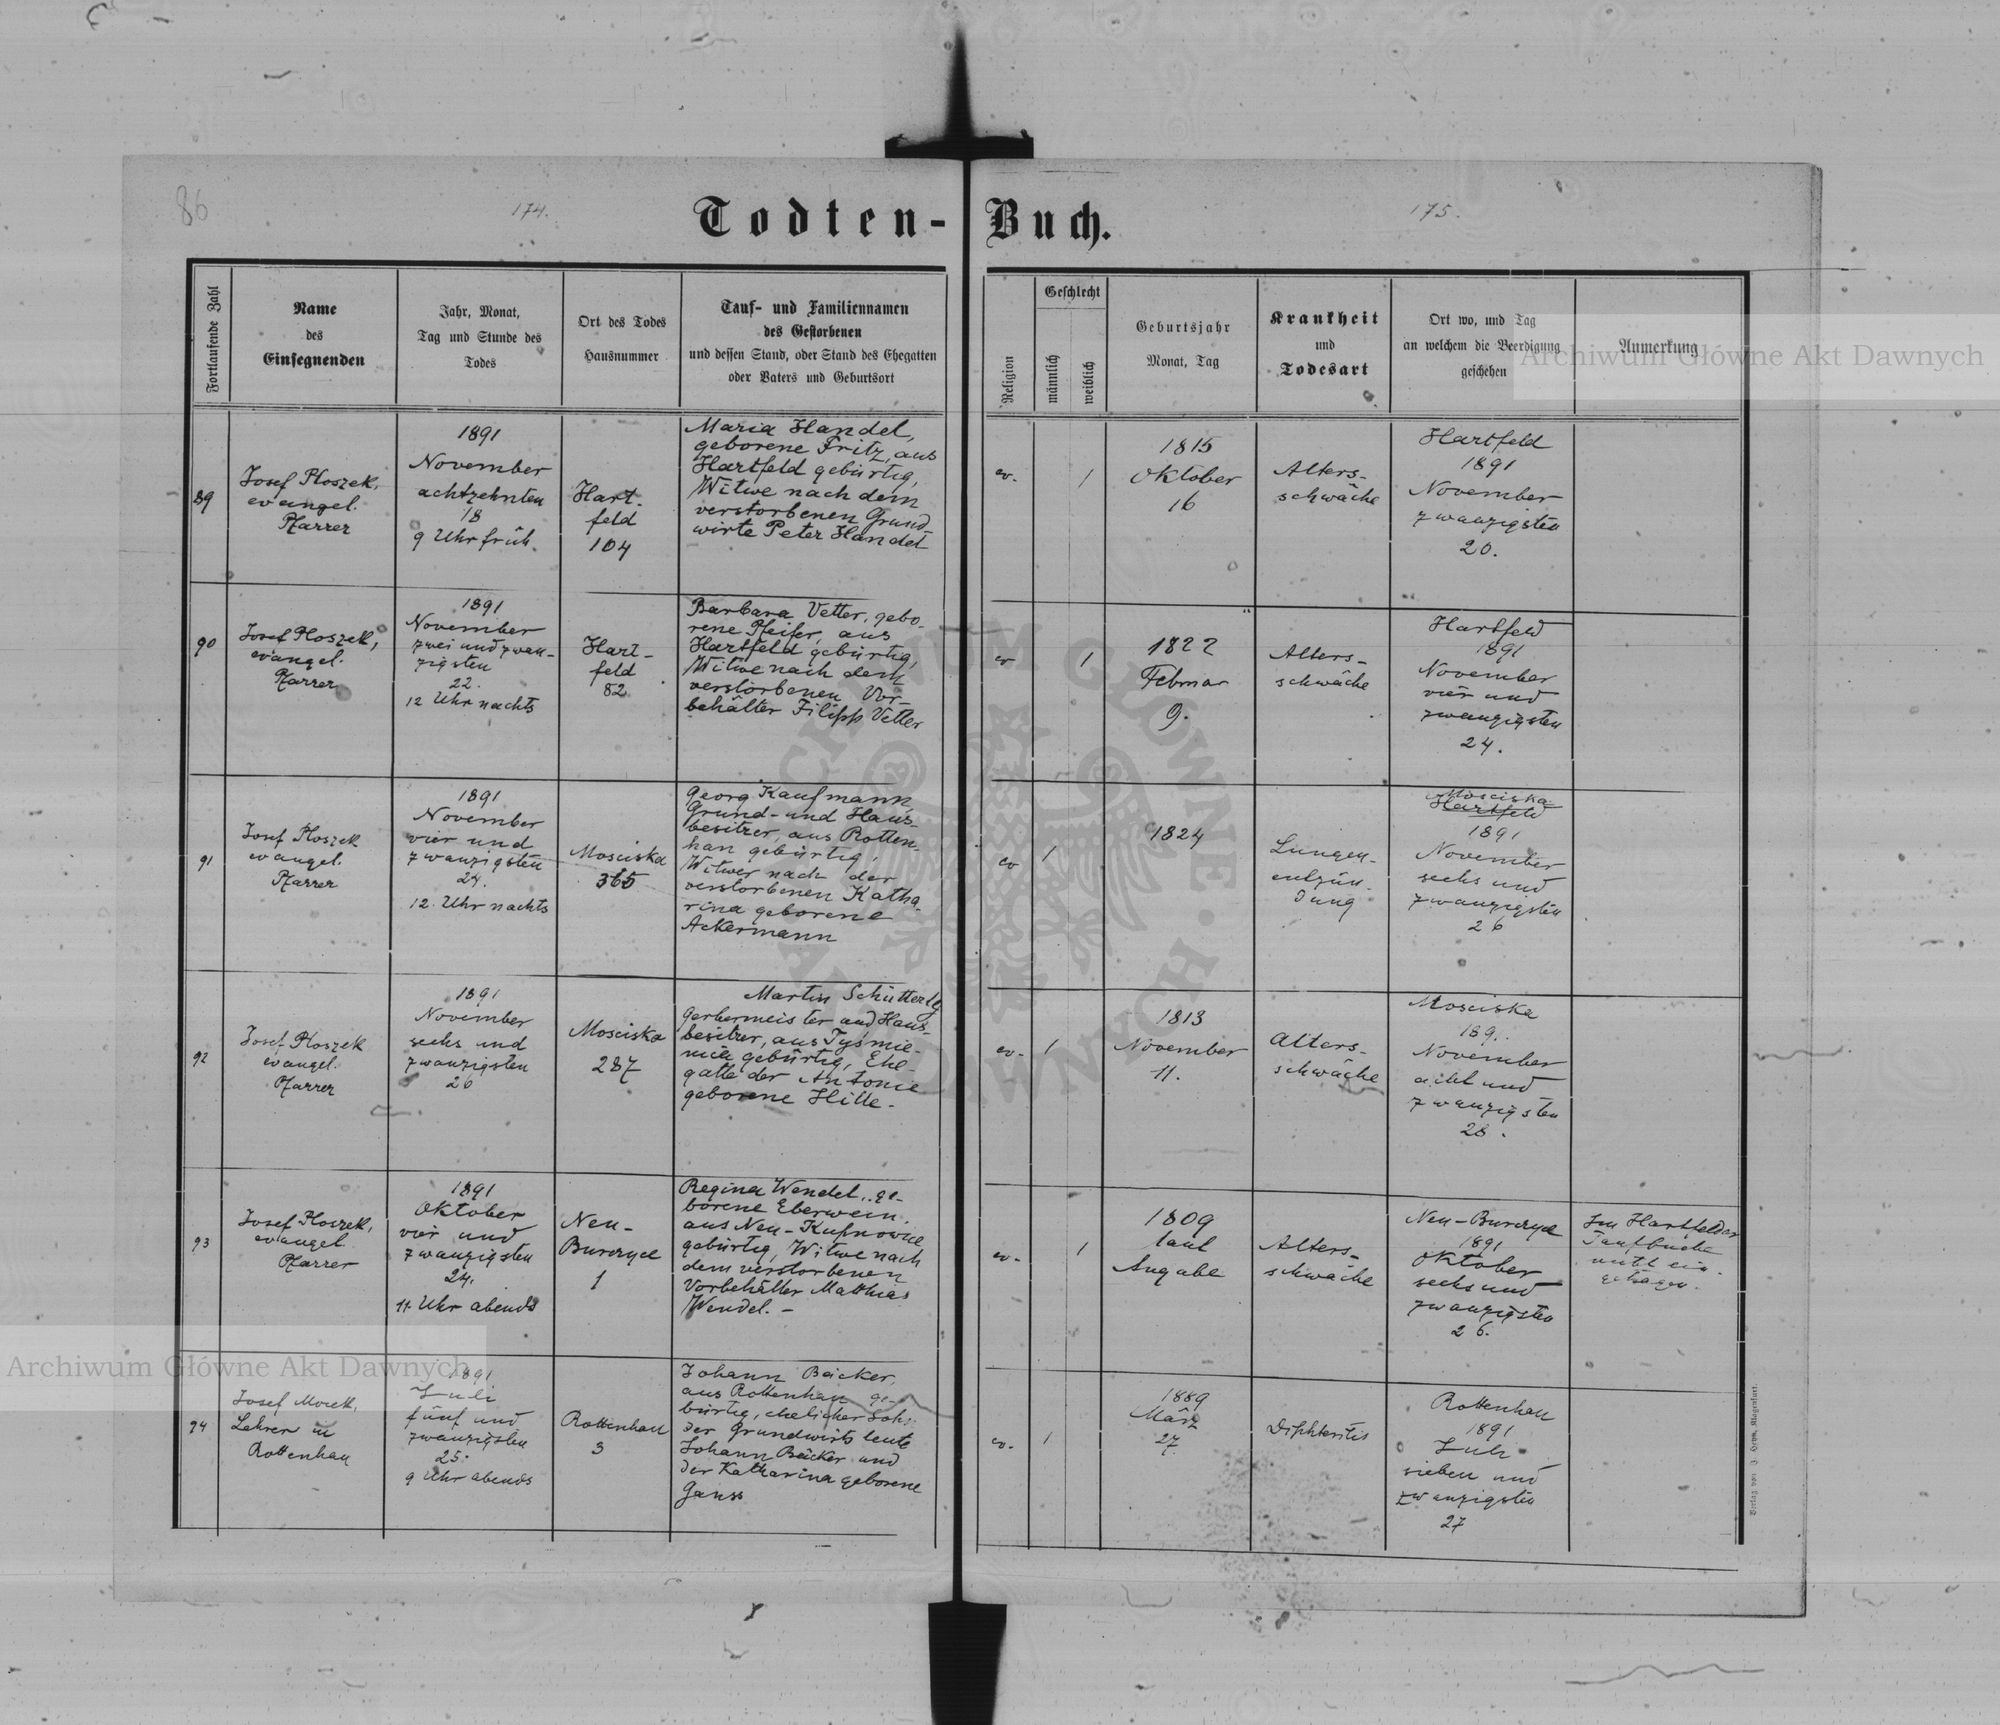 86
174.
175.
Todten-Buch.
Fortlaufende Zahl
Name
des
Einsegnenden
Jahr, Monat,
Tag und Stunde des
Todes
Ort des Todes
Hausnummer
Tauf- und Familiennamen
des Gestorbenen
und dessen Stand, oder Stand des Ehegatten
oder Vaters und Geburtsort
Religion
Geschlecht
männlich
weiblich
Geburtsjahr
Monat, Tag
Krankheit
und
Todesart
Ort wo, und Tag
an welchem die Beerdigung
geschehen
Anmerkung
89
Josef Ploszek,
evangel.
Pfarrer
1891
November
achtzehnten
18
9 Uhr früh.
Hart-
feld
104
Maria Handel,
geborene Fritz, aus
Hartfeld gebürtig,
Witwe nach dem
verstorbenen Grund-
wirte Peter Handel
ev.
1
1815
Oktober
16
Alters-
schwäche
Hartfeld
1891
November
zwanzigsten
20.
90
Josef Ploszek,
evangel.
Pfarrer
1891
November
zwei und zwan-
zigsten
22.
12 Uhr nachts
Hart-
feld
82
Barbara Vetter, gebo-
rene Pfeifer, aus
Hartfeld gebürtig,
Witwe nach dem
verstorbenen Vor-
behälter Filipp Vetter
ev
1
1822
Februar
9.
Alters-
schwäche
Hartfeld
1891
November
vier und
zwanzigsten
24.
91
Josef Ploszek
evangel.
Pfarrer
1891
November
vier und
zwanzigsten
24.
12. Uhr nachts
Mosciska
365
Georg Kaufmann,
Grund- und Haus-
besitzer, aus Rotten-
han gebürtig,
Witwer nach der
verstorbenen Katha-
rina geborene
Ackermann
ev
1
1824
Lungen-
entzün-
dung
Mosciska
Hartfeld
1891
November
sechs und
zwanzigsten
26
92
Josef Ploszek
evangel.
Pfarrer
1891
November
sechs und
zwanzigsten
26
Mosciska
287
Martin
Gerbermeister und Haus-
besitzer, aus Tyśmie-
nica gebürtig, Ehe-
gatte der Antonie
geborene Hille.
ev.
1
1813
November
11.
Alters-
schwäche
Mosciska
189.
November
acht und
zwanzigsten
28.
93
Josef Ploszek,
evangel.
Pfarrer
1891
Oktober
vier und
zwanzigsten
24.
11 Uhr abends
Neu-
Burczyce
1
Regina Wendel, ge-
borene Eberwein,
aus Neu-Kupnowice
gebürtig, Witwe nach
dem verstorbenen
Vorbehälter Matthias
Wendel. -
ev.
1
1809
laut
Angabe
Alters-
schwäche
Neu-Burczyce
1891
Oktober
sechs und
zwanzigsten
26.
Im Hartfelder
Taufbuche
nicht ein-
getragen.
94
Josef Mock,
Lehrer in
Rottenhan
1891
Juli
fünf und
zwanzigsten
25.
9 Uhr abends
Rottenhan
3
Johann Bäcker,
aus Rottenhan ge-
bürtig, ehelicher Sohn
der Grundwirtsleute
Johann Bäcker und
der Katharina geborene
Ganss
ev.
1
1889
März
27.
Diphteritis
Rottenhan
1891
Juli
sieben und
zwanzigsten
27
Verlag von J. Heyn, Klagenfurt.
Archiwum Główne Akt Dawnych
Archiwum Główne Akt Dawnych
ARCHIWUM GŁÓWNE